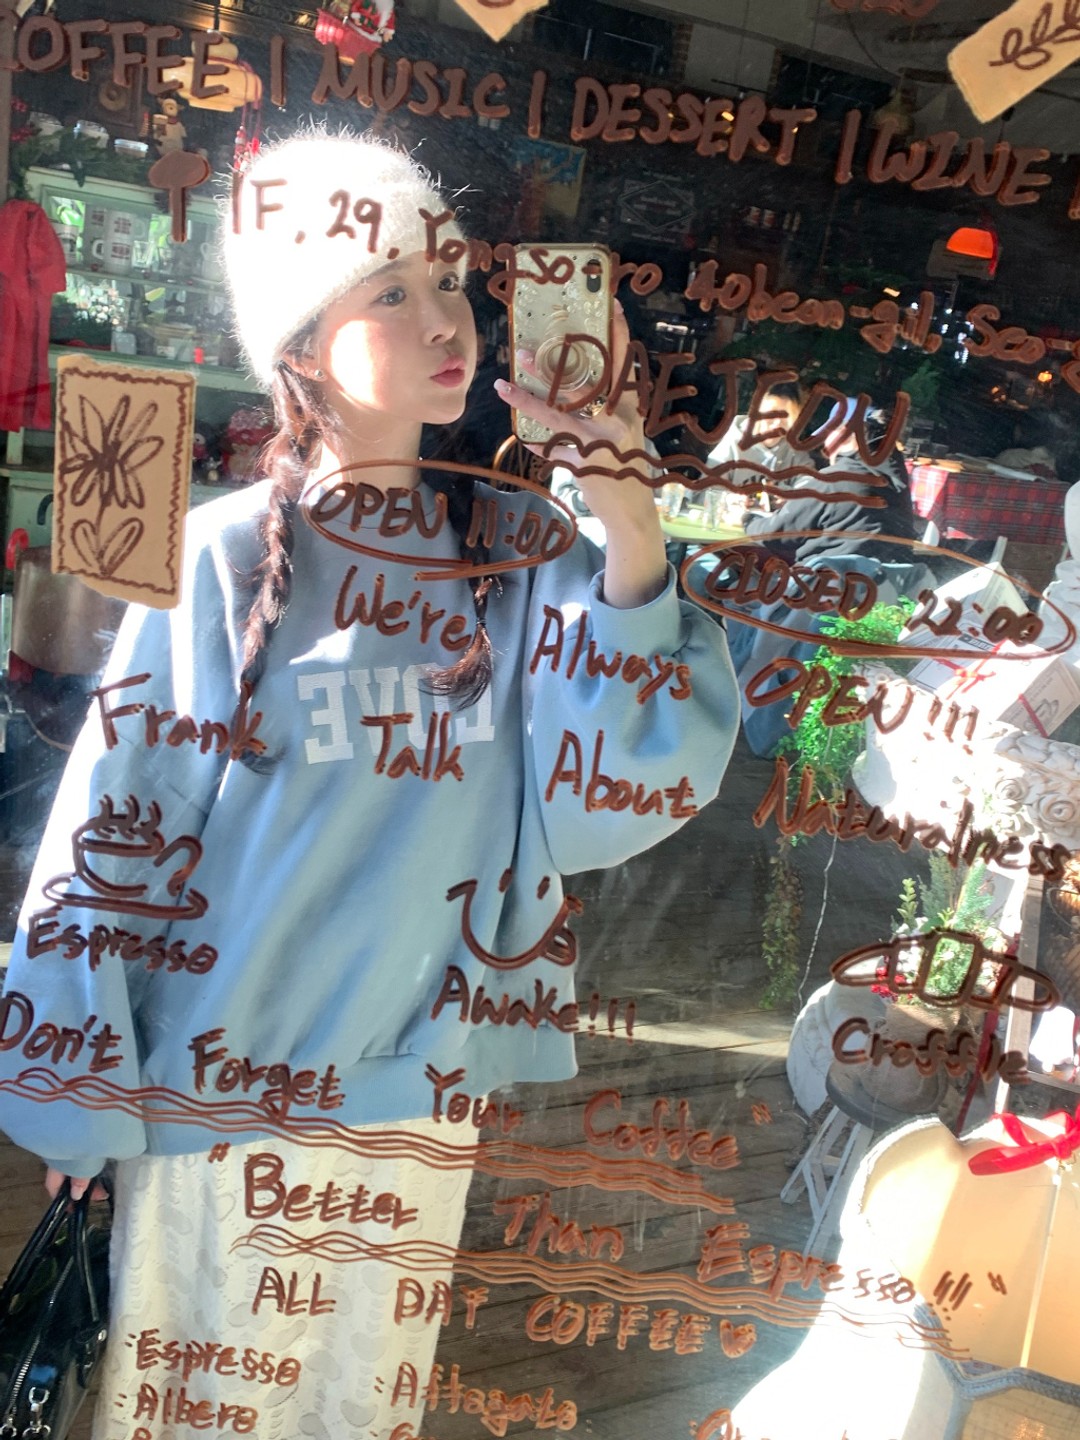 COFFEE | MUSIC | DESSERT | WINE |
1F, 29, Yongso-ro 40beon-gil, Seo-g
DAEJEON
OPEN 11:00
CLOSED 22:00
We're Always OPEN!!!
LOVE
Frank Talk About Naturalness
Espresso
Awake!!!
Croffle
Don't Forget Your Coffee "
" Better Than Espresso !!! "
ALL DAY COFFEE
: Espresso
: Affogato
: Albero